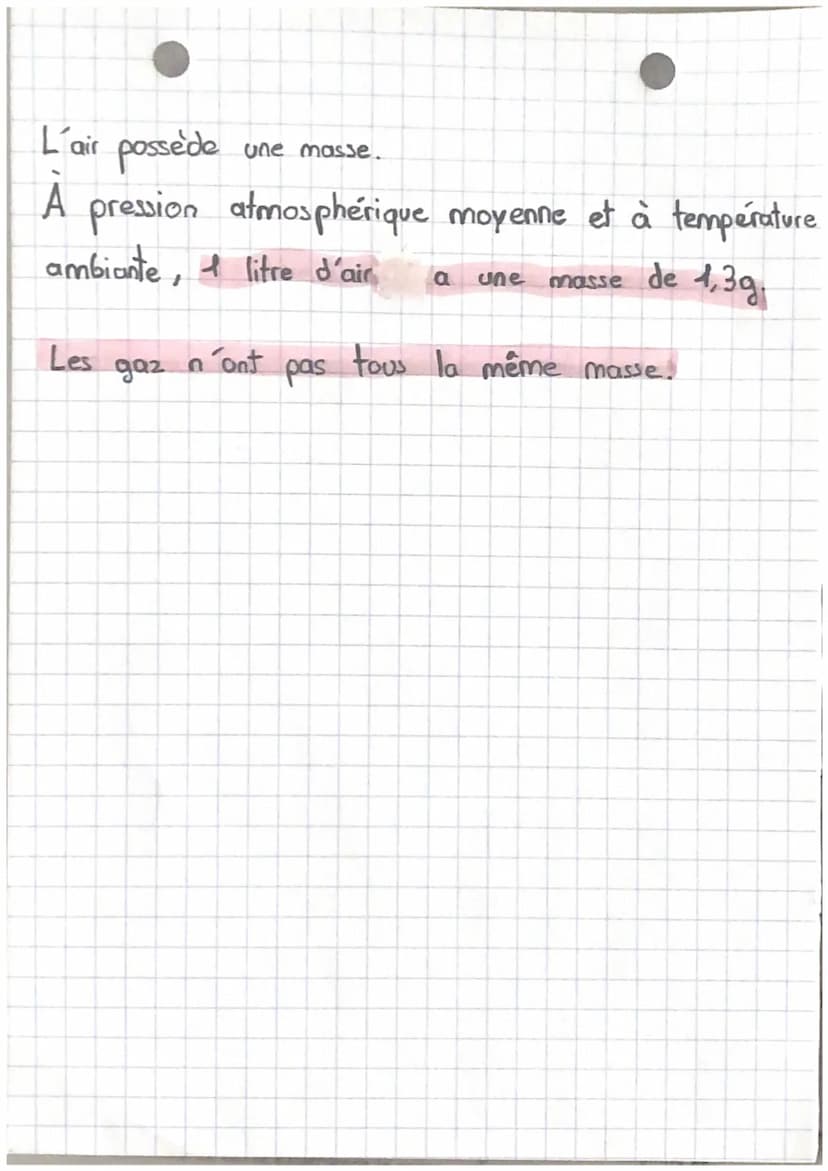 L'air possède une masse.
À pression atmosphérique moyenne et à température
ambiante, 1 litre d'air a une masse de 1,3g.
Les gaz n'ont pas tous la même masse.